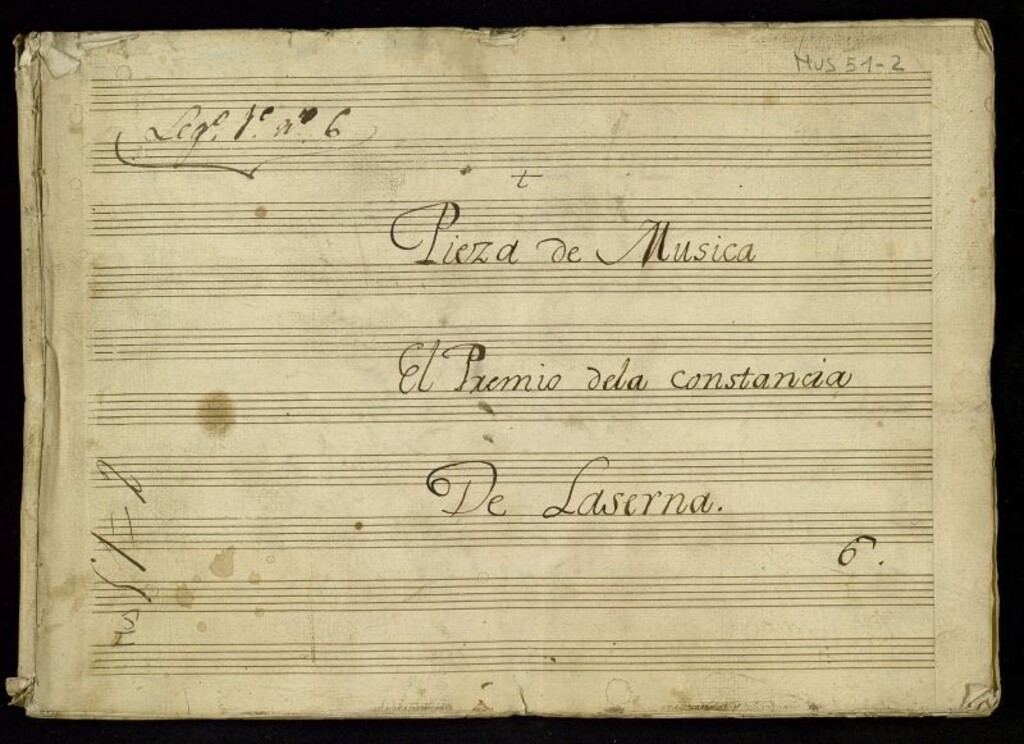 MUS 51-2
Leg.º 1.º n.º 6
t
Pieza de Musica
El Premio dela constancia
De Laserna.
6.
MUS 51=2